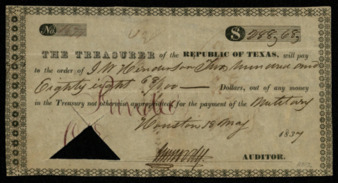 No
$ 388,68
THE TREASURER of the REPUBLIC OF TEXAS, will pay
to the order of J. W. Henderson Three hundred and
Eighty eight 68/100 — Dollars, out of any money
in the Treasury not otherwise appropriated for the payment of the Military
Houston 18 May 1837
AUDITOR.